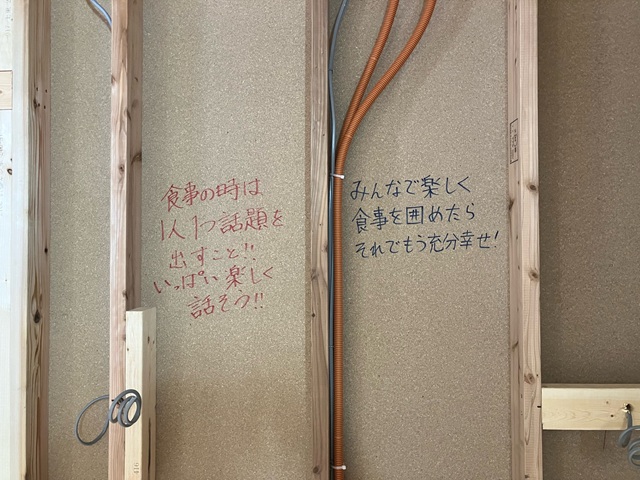 食事の時は
1人1つ話題を
出すこと!!
いっぱい楽しく
話そう!!
みんなで楽しく
食事を囲めたら
それでもう充分幸せ!